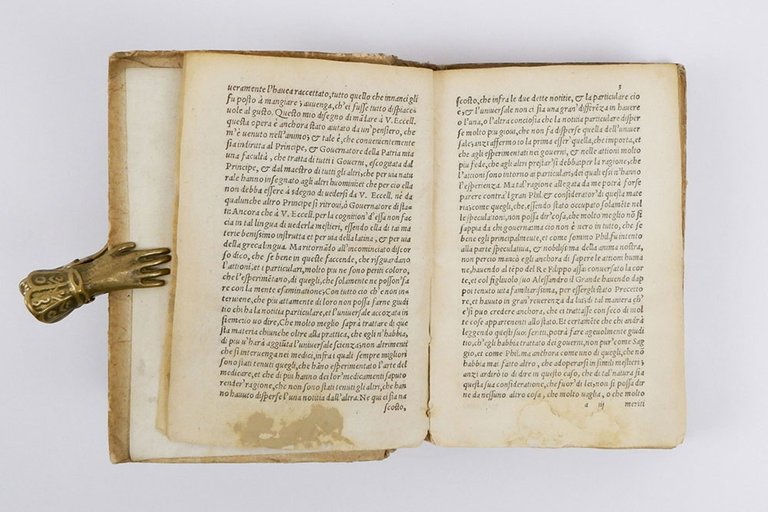 ueramente l'hauea raccettato, tutto quello che innanci gli
fu posto à mangiare: auuenga, ch'ei fusse tutto dispiace
uole al gusto. Questo mio disegno di mãdare à V. Eccell.
quest'opera è anchora stato aiutato da un'pensiero, che
m'è uenuto nell'animo; & tale è, che conuenientemente
sia indirata al Principe, & Gouernatore della Patria mia
una facultà, che tratta di tutti i Gouerni, escogitata dal
Principe, & dal maestro di tutti gli altri, che per uia natu
rale hanno insegnato agli altri huomini: et che per cio ella
non debba essere à sdegno di uedersi da V. Eccell. nè da
qualunche altro Principe si ritroui, ò Gouernator di sta
ti: Ancora che à V. Eccell. per la cognition'd'essa non fac
cia in tal lingua di uederla mestieri, essendo ella di tai ma
terie benissimo instrutta et per uia della latina, & per uia
della greca lingua. Ma ritornãdo all'incominciato discor
so dico, che se bene in queste faccende, che risguardano
l'attioni, et i particulari, molto piu ne sono periti coloro,
che l'esperimẽtano, di quegli, che solamente ne posson'fa
re con la mente essaminatione; Con tutto cio ch'è non in
teruiene, che piu attamente di loro non possa farne giudi
tio chi ha la notitia particulare, et l'uniuersale accozata in
siemerio uo dire, Che molto meglio saprà trattare di que
sta materia chiunche oltre alla prattica, che egli n'habbia,
di piu n'harà aggiunta l'uniuersal scienza; non altrimenti
che si interuenga nei medici, infra i quali sempre migliori
sono stati tenuti quegli, che hãno esperimentato l'arte del
medicare, et che di piu hanno dei lor'medicamenti saputo
render'ragione, che non sono stati tenuti gli altri, che han
no hauuto disperse l'una notitia dall'altra. Ne qui ci sia na
scosto,
3
scosto, che infra le due dette notitie, & la particulare cio
è, & l'uniuersale non ci sia una gran'differẽza in hauere
o l'una, o l'altra conciosia che la notitia particulare disper
se molto piu gioua, che non fa disperse quella dell'uniuer
sale; anzi affermo io la prima esser'quella, che importa, et
che agli esperimentati nei gouerni, & nelle attioni molto
piu fede, che agli altri prestar'si debba; per la ragione, che
l'attioni sono intorno ai particulari, dei quali essi n'hanno
l'esperienza. Ma tal'ragione allegata da me potrà forse
parere contra'l Gran Phil. & considerator'di questa mate
ria; come quegli, che, essendo stato occupato solamẽte nel
le speculationi, non possa dir'cosa, che molto meglio nõ si
sappia da chi gouerna: ma cio non è uero in tutto, che se
bene egli principalmente, et come sommo Phil. fu intento
alla parte speculatiua, & nobilissima della anima nostra,
non perciò mancò egli anchora di sapere le attioni huma
ne, hauendo al tẽpo del Re Filippo assai conuersato in cor
te, et col figliuolo suo Alessandro il Grande hauendo dap
poi tenuto uita familiarissima, per essergli stato Precetto
re, et hauuto in gran'reuerenza da lui: di tal maniera ch'e
si può credere anchora, che ei trattasse con seco di mol
te cose appartenenti allo stato. Et certamẽte che chi andrà
leggendo questi suoi scritti, potrà fare ageuolmente giudi
tio, ch'egli habbia trattato dei gouerni, non pur'come Sag
gio, et come Phil. ma anchora come uno di quegli, che nõ
habbia mai fatto altro, che adoperarsi in simili mestieri;
anzi ardirò io di dire in questo caso, che di tal'natura sia
questa sua consideratione, che fuor'di lei non si possa dir
ne da nessuno altro cosa, che molto uaglia, o che molto
a iij meriti